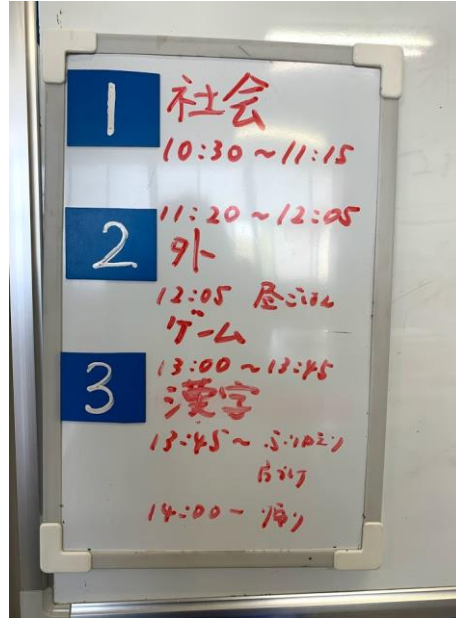 1 社会
10:30~11:15
11:20~12:05
2 外
12:05 昼ごはん
ゲーム
13:00~13:45
3 漢字
13:45~ ふりかえり
片づけ
14:00~ 帰り